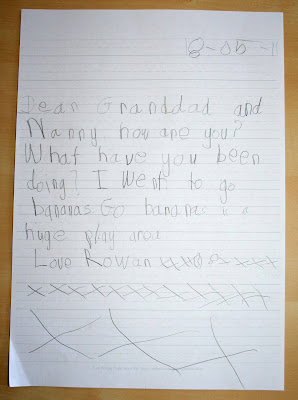 Dear Granddad and
Nanny how are you?
What have you been
doing? I went to go
bananas Go bananas is a
huge play area
Love Rowan xxoxxxx
xxxxxxxxxxxxx
x x x